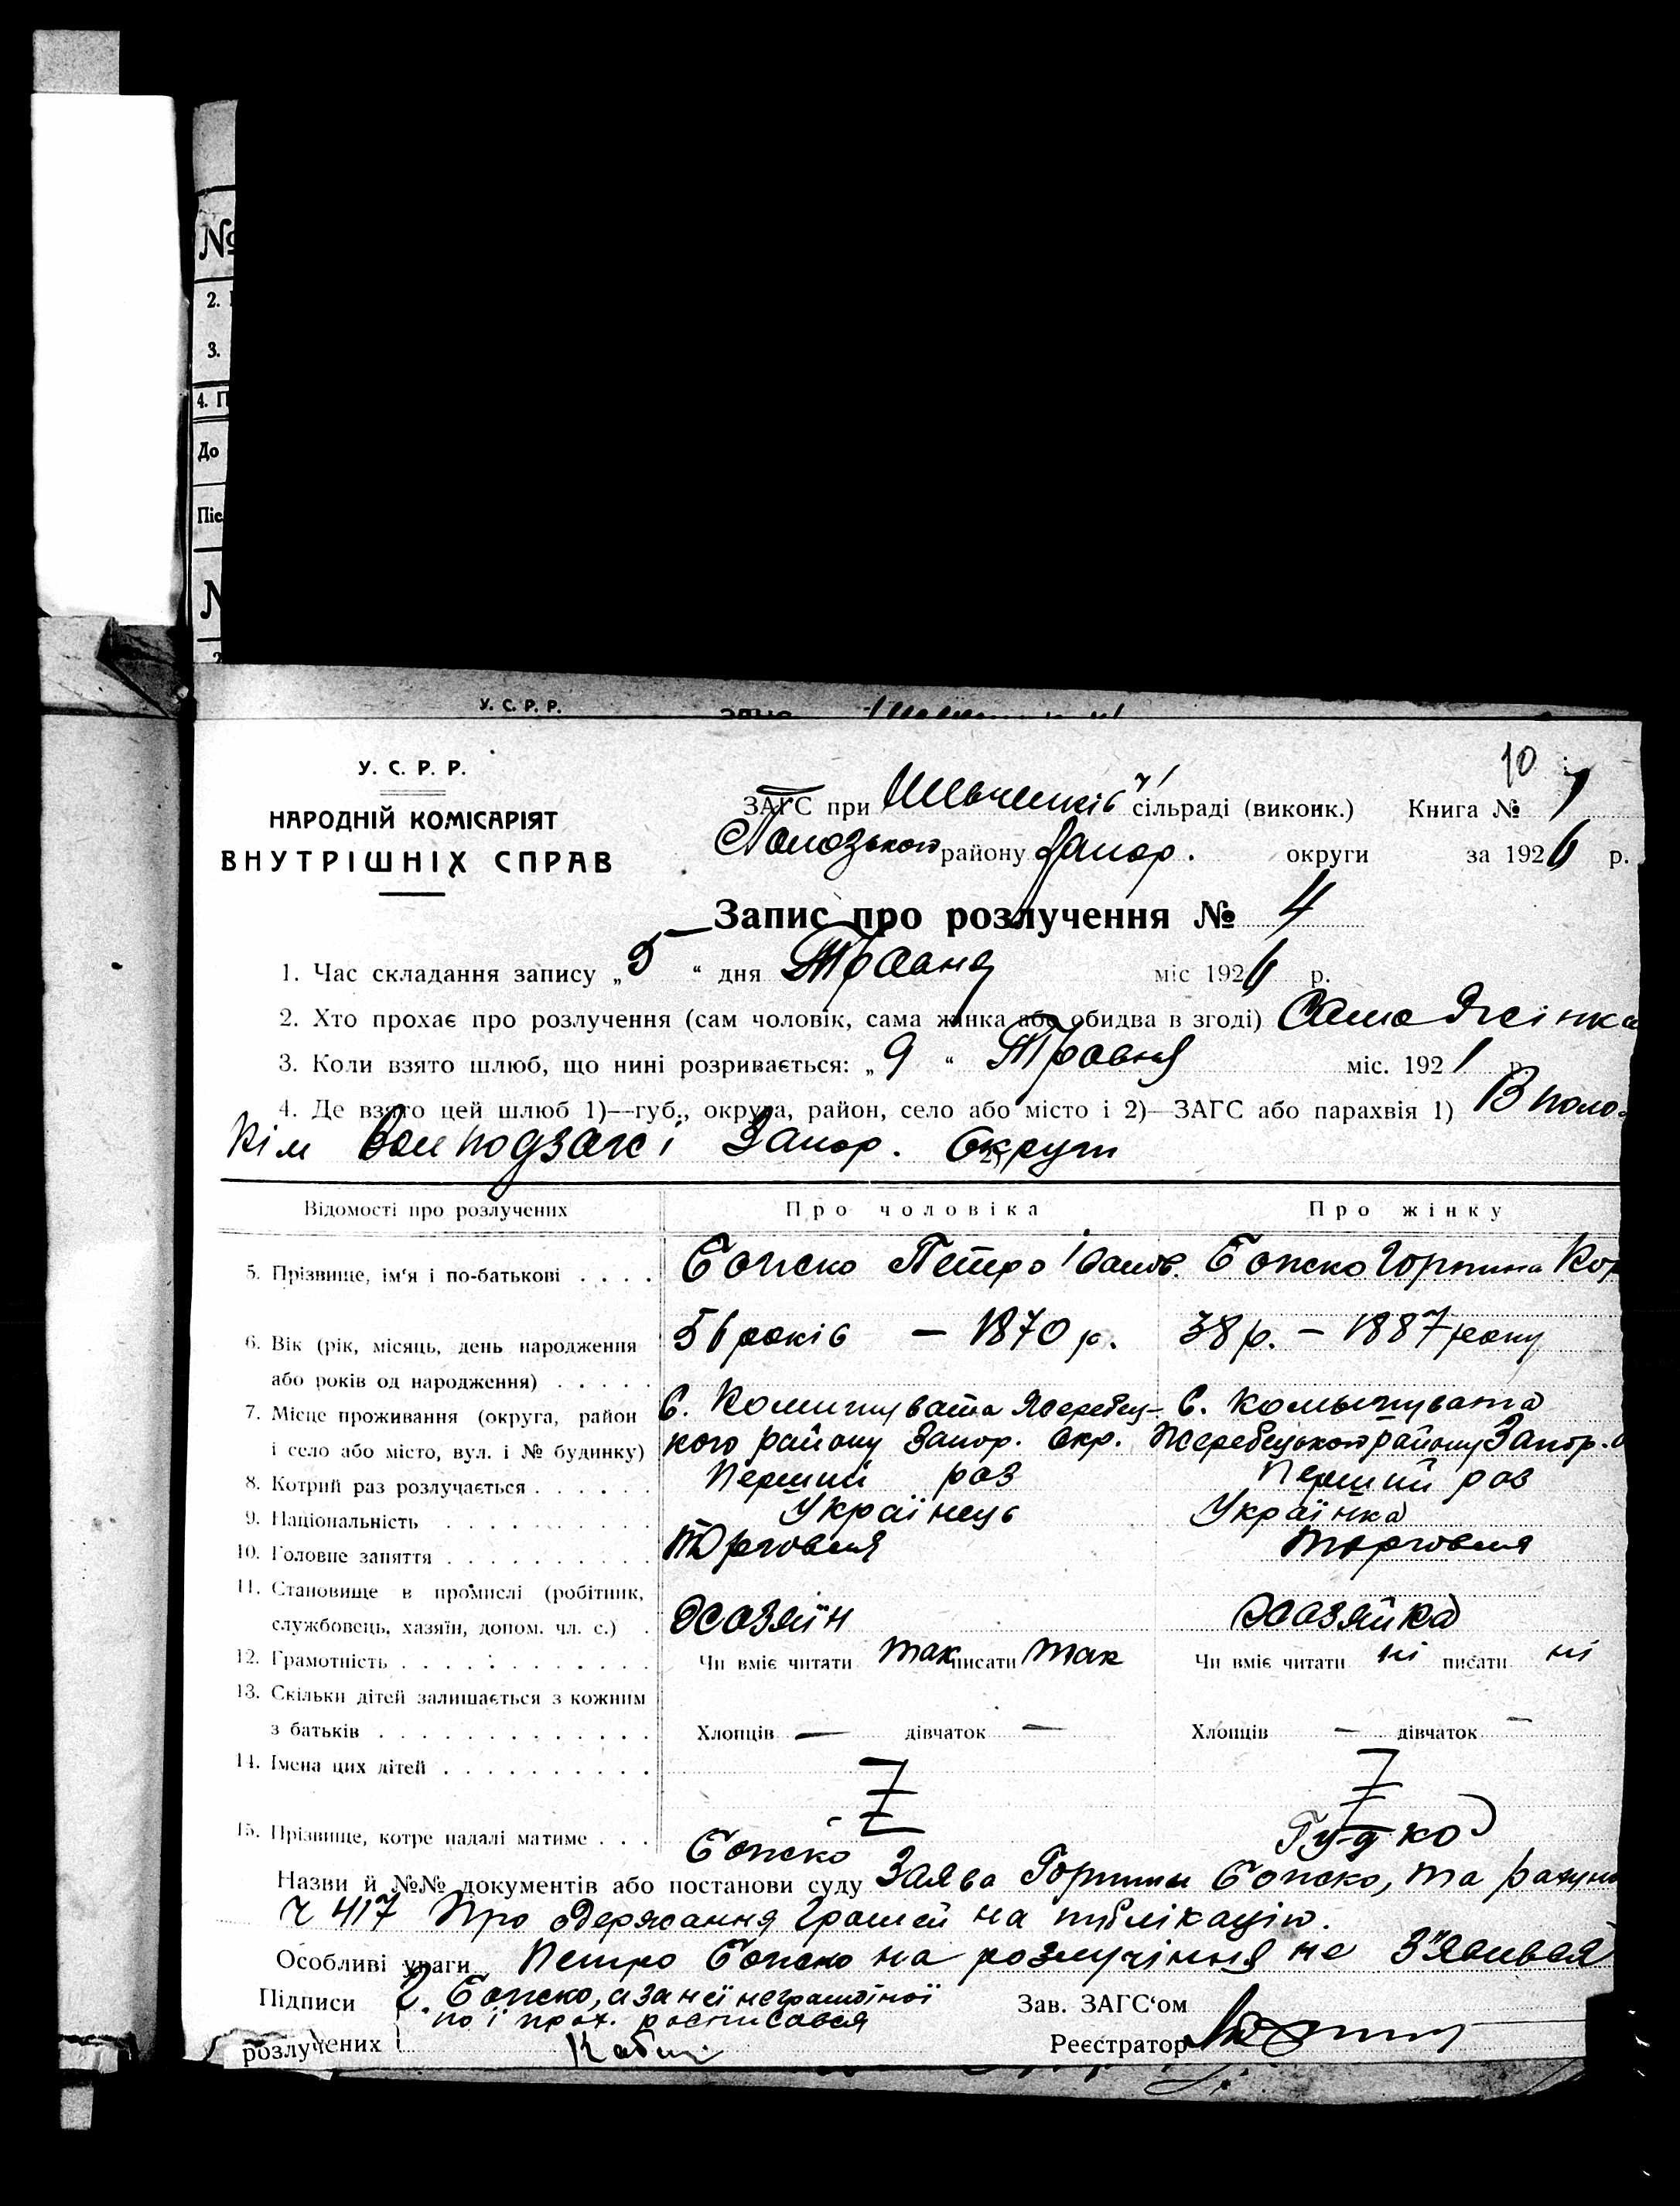 №
2.
3.
4. П
До
Піс
У. С. Р. Р.
10
У. С. Р. Р.
НАРОДНІЙ КОМІСАРІЯТ
ВНУТРІШНІХ СПРАВ
ЗАГС при сільраді (виконк.) Книга № 1
району Запор. округи за 1926 р.
Запис про розлучення № 4
1. Час складання запису „5“ дня Травня міс 1926 р.
2. Хто прохає про розлучення (сам чоловік, сама жінка або обидва в згоді) Сама Жінка
3. Коли взято шлюб, що нині розривається: „9“ Травня міс. 1921 р.
4. Де взято цей шлюб 1)—губ., округа, район, село або місто і 2)—ЗАГС або парахвія 1) В Поло-
кім Запор. Округи
Відомості про розлучених Про чоловіка Про жінку
5. Прізвище, ім‘я і по-батькові . . . . Петро Іванов. Горпина
6. Вік (рік, місяць, день народження 56 років — 1870 р. 38 р. — 1887 року
або років од народження) . . . . .
7. Місце проживання (округа, район С. Комишувата Жеребец- С. Комышувата
і село або місто, вул. і № будинку) кого району Запор. Окр. Жеребецького району Запор.
8. Котрий раз розлучається . . . . . . Перший раз Перший раз
9. Національність . . . . . . . . . . Українець Українка
10. Головне заняття . . . . . . . . . . Торговля торговля
11. Становище в промислі (робітник,
службовець, хазяїн, допом. чл. с.) . Хозяїн Хозяйка
12. Грамотність . . . . . . . . . . . . Чи вміє читати так писати так Чи вміє читати ні писати ні
13. Скільки дітей залишається з кожним
з батьків . . . . . . . . . . . . . Хлопців — дівчаток — Хлопців — дівчаток —
14. Імена цих дітей . . . . . . . . . .
15. Прізвище, котре надалі матиме . . . Гудко
Назви й №№ документів або постанови суду Заява Горпини та
ч 417 Про одержання грошей на публікацію.
Особливі уваги Петро на розлучіння не з"явився
Підписи Г. а за неї неграмотної
по її прох. росписався
розлучених
Зав. ЗАГС‘ом
Реєстратор